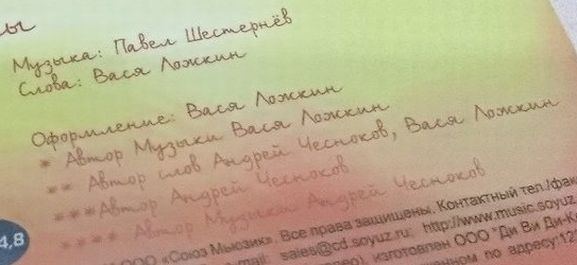 ы
Музыка: Павел Шестернёв
Слова: Вася Ложкин
Оформление: Вася Ложкин
* Автор Музыки Вася Ложкин
** Автор слов Андрей Чесноков, Вася Ложкин
***Автор Андрей Чесноков
**** Автор Музыки Андрей Чесноков
4,8
ООО «Союз Мьюзик». Все права защищены. Контактный тел./фак
mail: sales@cd.soyuz.ru; http://www.music.soyuz
изготовлен ООО "Ди Ви Ди-К
по адресу: